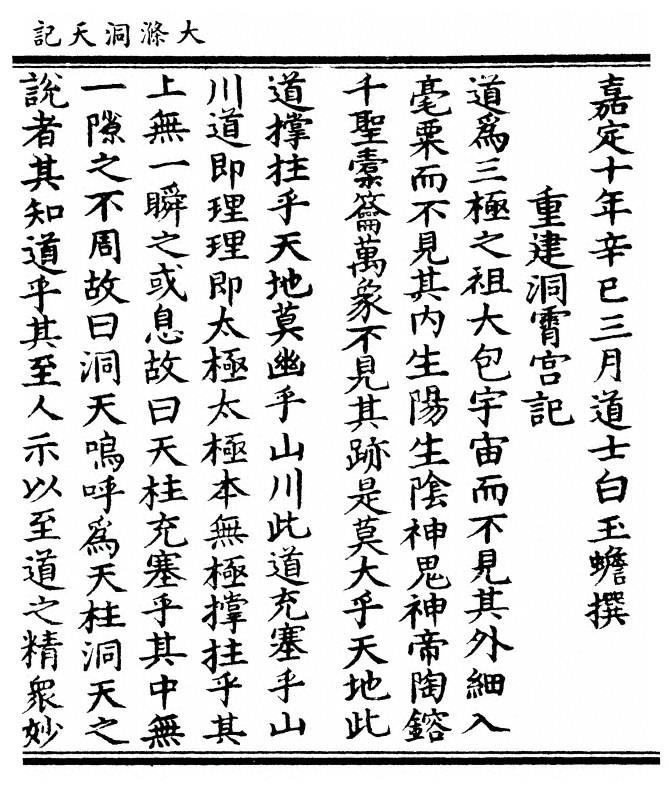 大滌洞天記
嘉定十年辛巳三月道士白玉蟾撰
重建洞霄宮記
道爲三極之祖大包宇宙而不見其外細入
毫粟而不見其内生陽生陰神鬼神帝陶鎔
千聖橐籥萬象不見其跡是莫大乎天地此
道撑拄乎天地莫幽乎山川此道充塞乎山
川道即理理即太極太極本無極撑拄乎其
上無一瞬之或息故曰天柱充塞乎其中無
一隙之不周故曰洞天嗚呼爲天柱洞天之
說者其知道乎其至人示以至道之精衆妙